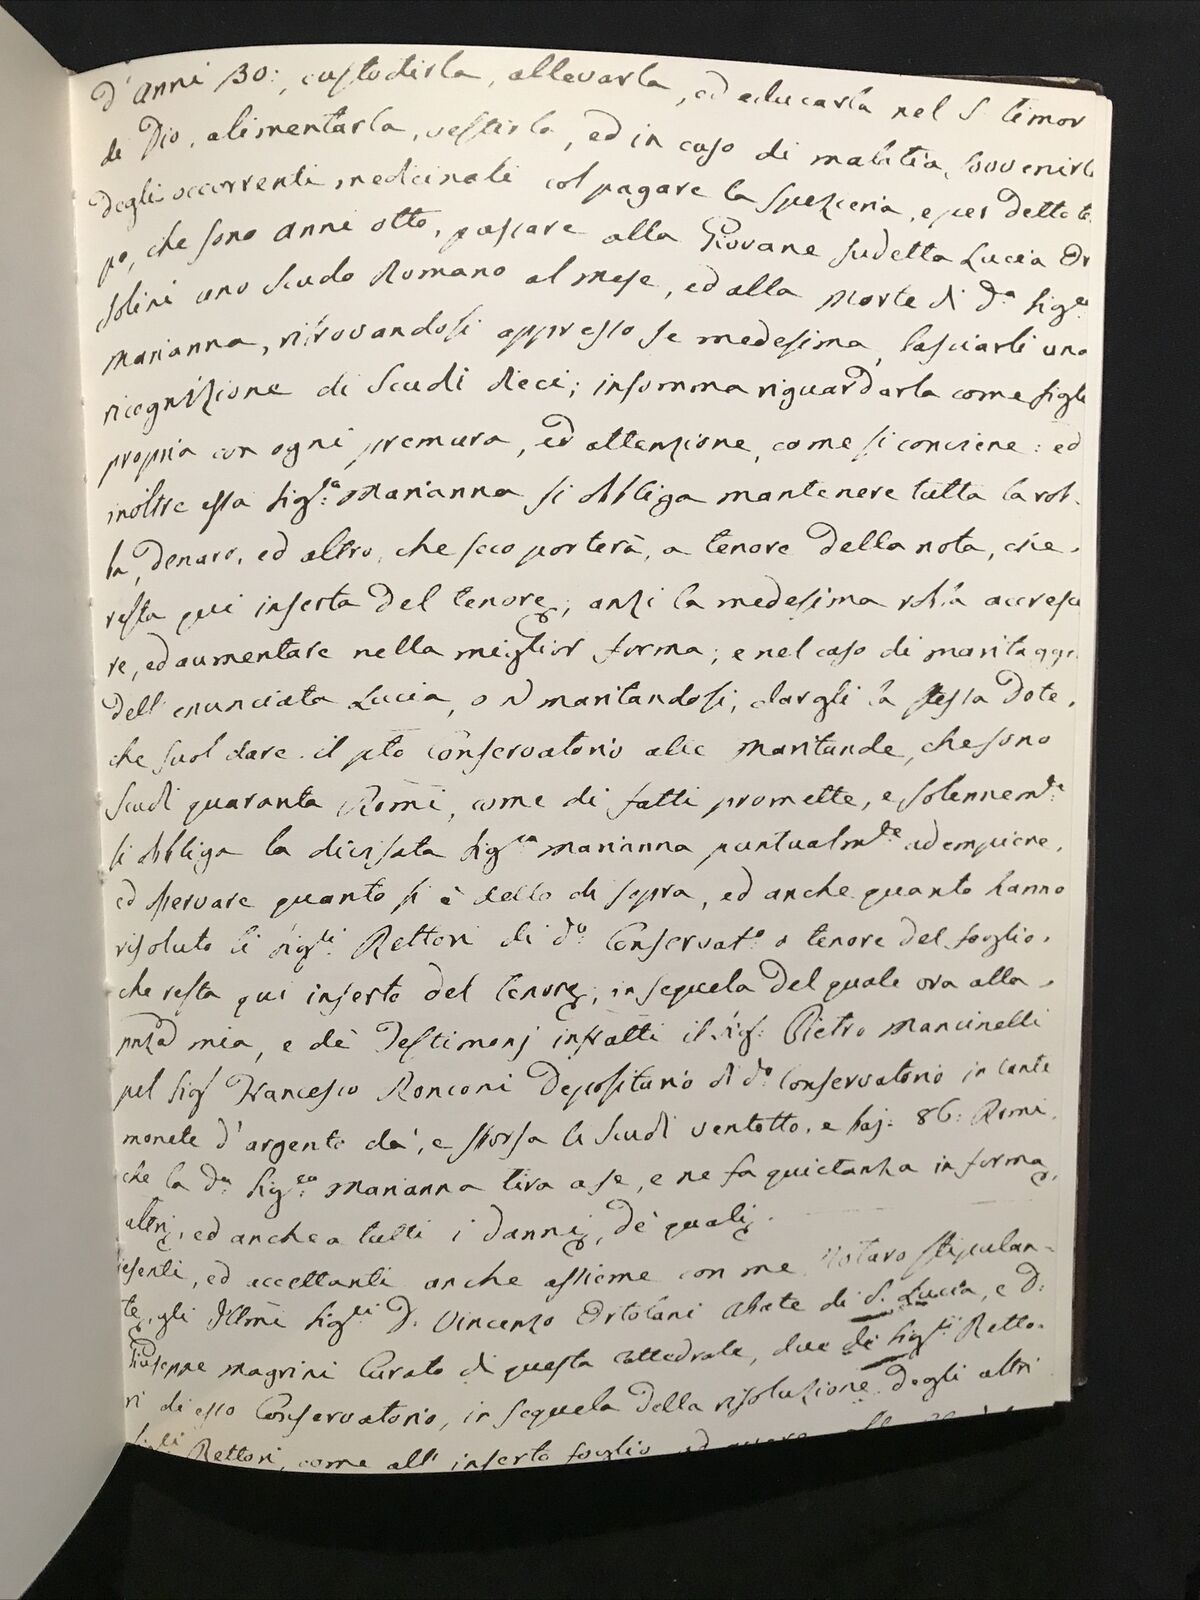 d'anni 30:, custodirla, allevarla, ed educarla nel S. timor
di Dio, alimentarla, vestirla, ed in caso di malatia, sovvenirla
degli occorrenti medicinali col pagare la spezieria, e per detto te
po, che sono anni otto, passare alla Giovane sudetta Lucia Or
solini uno scudo Romano al mese, ed alla morte di da. Sigra.
Marianna, ritrovandosi appresso se medesima, lasciarli una
ricognizione di scudi dieci; insomma riguardarla come figlia
propria con ogni premura, ed attenzione, come si conviene: ed
inoltre essa Sigra. Marianna si obbliga mantenere tutta la rob-
ba, denaro, ed altro, che seco porterà, a tenore della nota, che
resta qui inserta del tenore; anzi la medesima robba accresce
re, ed aumentare nella miglior forma; e nel caso di maritaggi
dell'enunciata Lucia, o N maritandosi, dargli la stessa Dote,
che suol dare il pto Conservatorio alle Maritande, che sono
scudi quaranta Romi, come di fatti promette, e solennemte
si obbliga la divisata Sigra. Marianna puntualmte adempiere,
ed osservare quanto si è detto di sopra, ed anche quanto hanno
risoluto li Sigri. Rettori di do. Conservato. a tenore del foglio,
che resta qui inserto del tenore; in sequela del quale ora alla
pnza mia, e de' Testimonj infratti il Sig. Pietro Mancinelli
pel Sigr Francesco Ronconi Depositario di do. Conservatorio in tante
monete d'argento da', e sborsa li scudi ventotto, e baj: 86: Romi,
che la da. Sigra. Marianna tira a se, e ne fa quietanza in forma
altri, ed anche a tutti i danni, de' quali.
esenti, ed accettanti anche assieme con me Notaro stipulan-
te, gli Illmi Sigri D. Vincenzo Ortolani Abate di S. Lucia, e D.
Giuseppe Magrini Curato di questa Cattedrale, due de' Sigri Retto-
ri di esso Conservatorio, in sequela della risoluzione degli altri
Sigri Rettori, come all'inserto foglio, ed